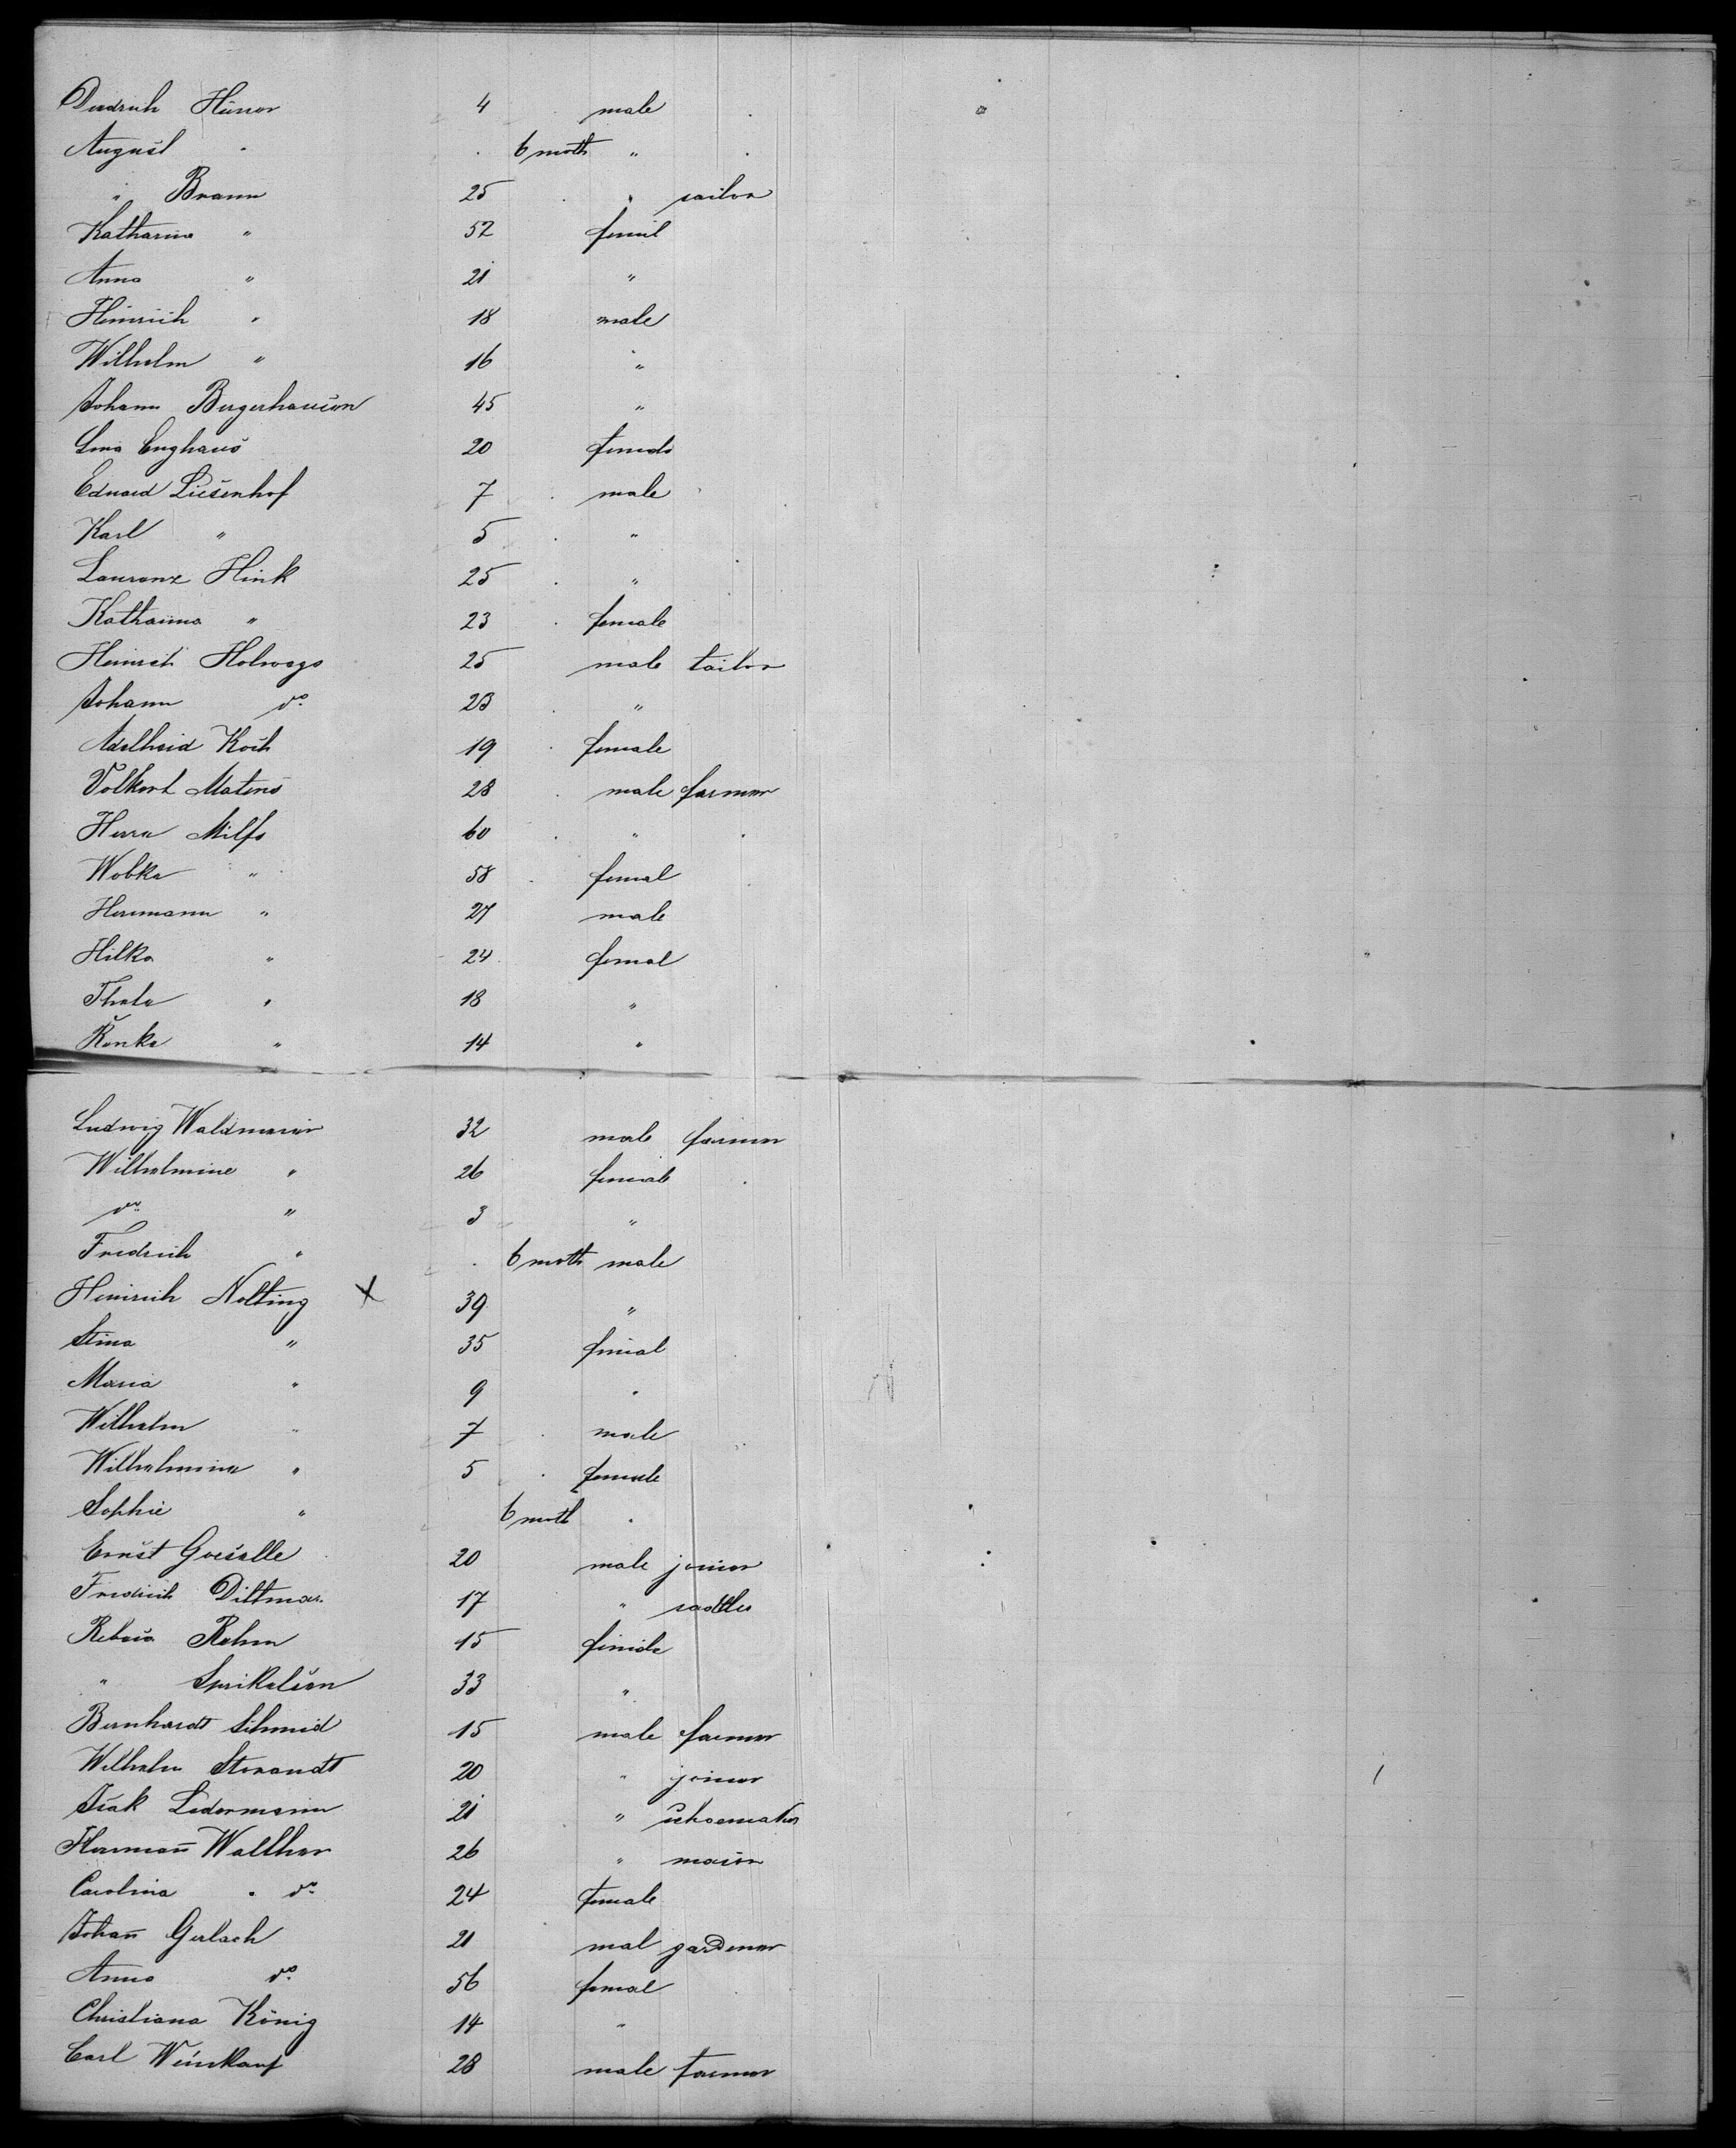 Diedrich Hüner 4 male
August " 6 month "
" Brann 25 " sailor
Katharina " 52 femal
Anna " 21 "
Heinrich " 18 male
Wilhelm " 16 "
Johann Bergerhausen 45 "
Lina Enghaus 20 female
Eduard Liesenhof 7 male
Karl " 5 "
Laurenz Hink 25 "
Katharina " 23 female
Heinrich Holwege 25 male tailor
Johann do 23 "
Adelheid Koch 19 female
Volkert Matens 28 male farmer
Harm Milfs 60 "
Wobke " 58 femal
Hermann " 27 male
Hilka " 24 femal
Thala " 18 "
Renka " 14 "
Ludwig Waldmeier 32 male farmer
Wilhelmine " 26 female
do " 3 "
Friedrich " 6 moth male
Heinrich Nolting X 39 "
Stina " 35 femal
Maria " 9 "
Wilhelm " 7 male
Wilhelmine " 5 female
Sophie " 6 moth "
Ernst Goeselle 20 male joiner
Friedrich Dittmar 17 " saddler
Rebeca Rahm 15 female
" Sprikelsen 33 "
Bernhardt Schmid 15 male farmer
Wilhelm Storandt 20 " joiner
Isak Ledermann 21 " schoemaker
Hermann Walther 26 " mason
Carolina " do 24 female
Johann Gerlach 21 mal gardener
Anna do 56 femal
Christiana König 14 "
Carl Weinkauf 28 male farmer